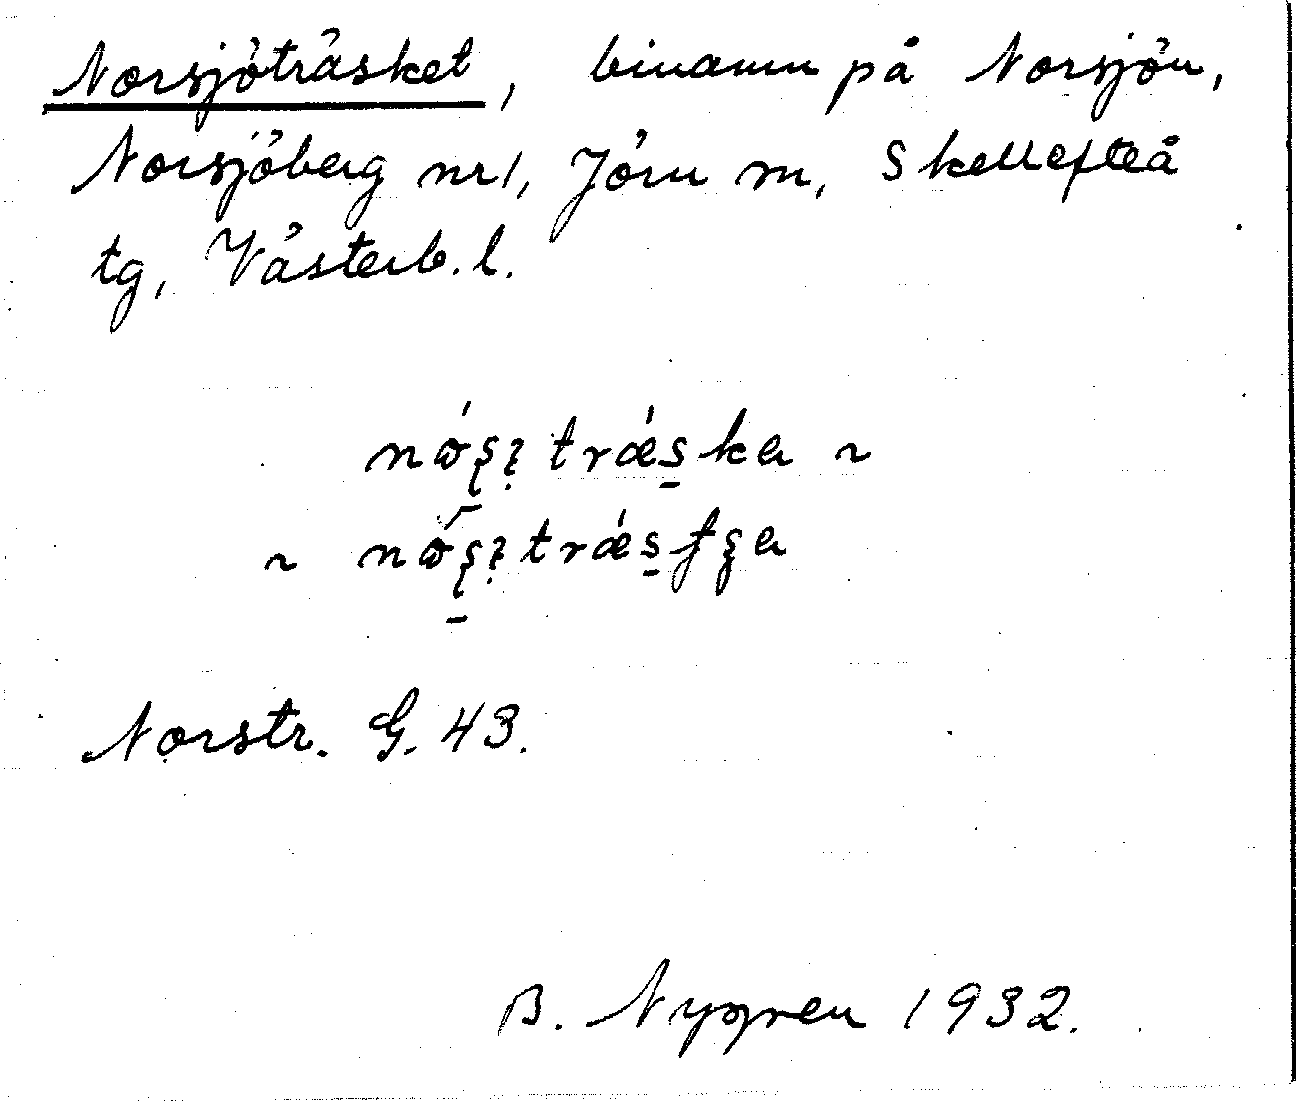 Norsjöträsket, binamn på Norsjön,
Norsjöberg nr 1, Jörn m, Skellefteå
tg, Västerb. l.
Norstr. G. 43.
B. Nygren 1932.